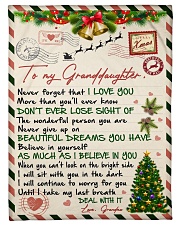 Xmas
To my Granddaughter
Never forget that I LOVE YOU
More than you'll ever know
DON'T EVER LOSE SIGHT OF
The wonderful person you are
Never give up on
BEAUTIFUL DREAMS YOU HAVE
Believe in yourself
AS MUCH AS I BELIEVE IN YOU
When you can't look on the bright side
I will sit with you in the dark
I will continue to worry for you
Until I take my last breath
DEAL WITH IT
Love, Grandma